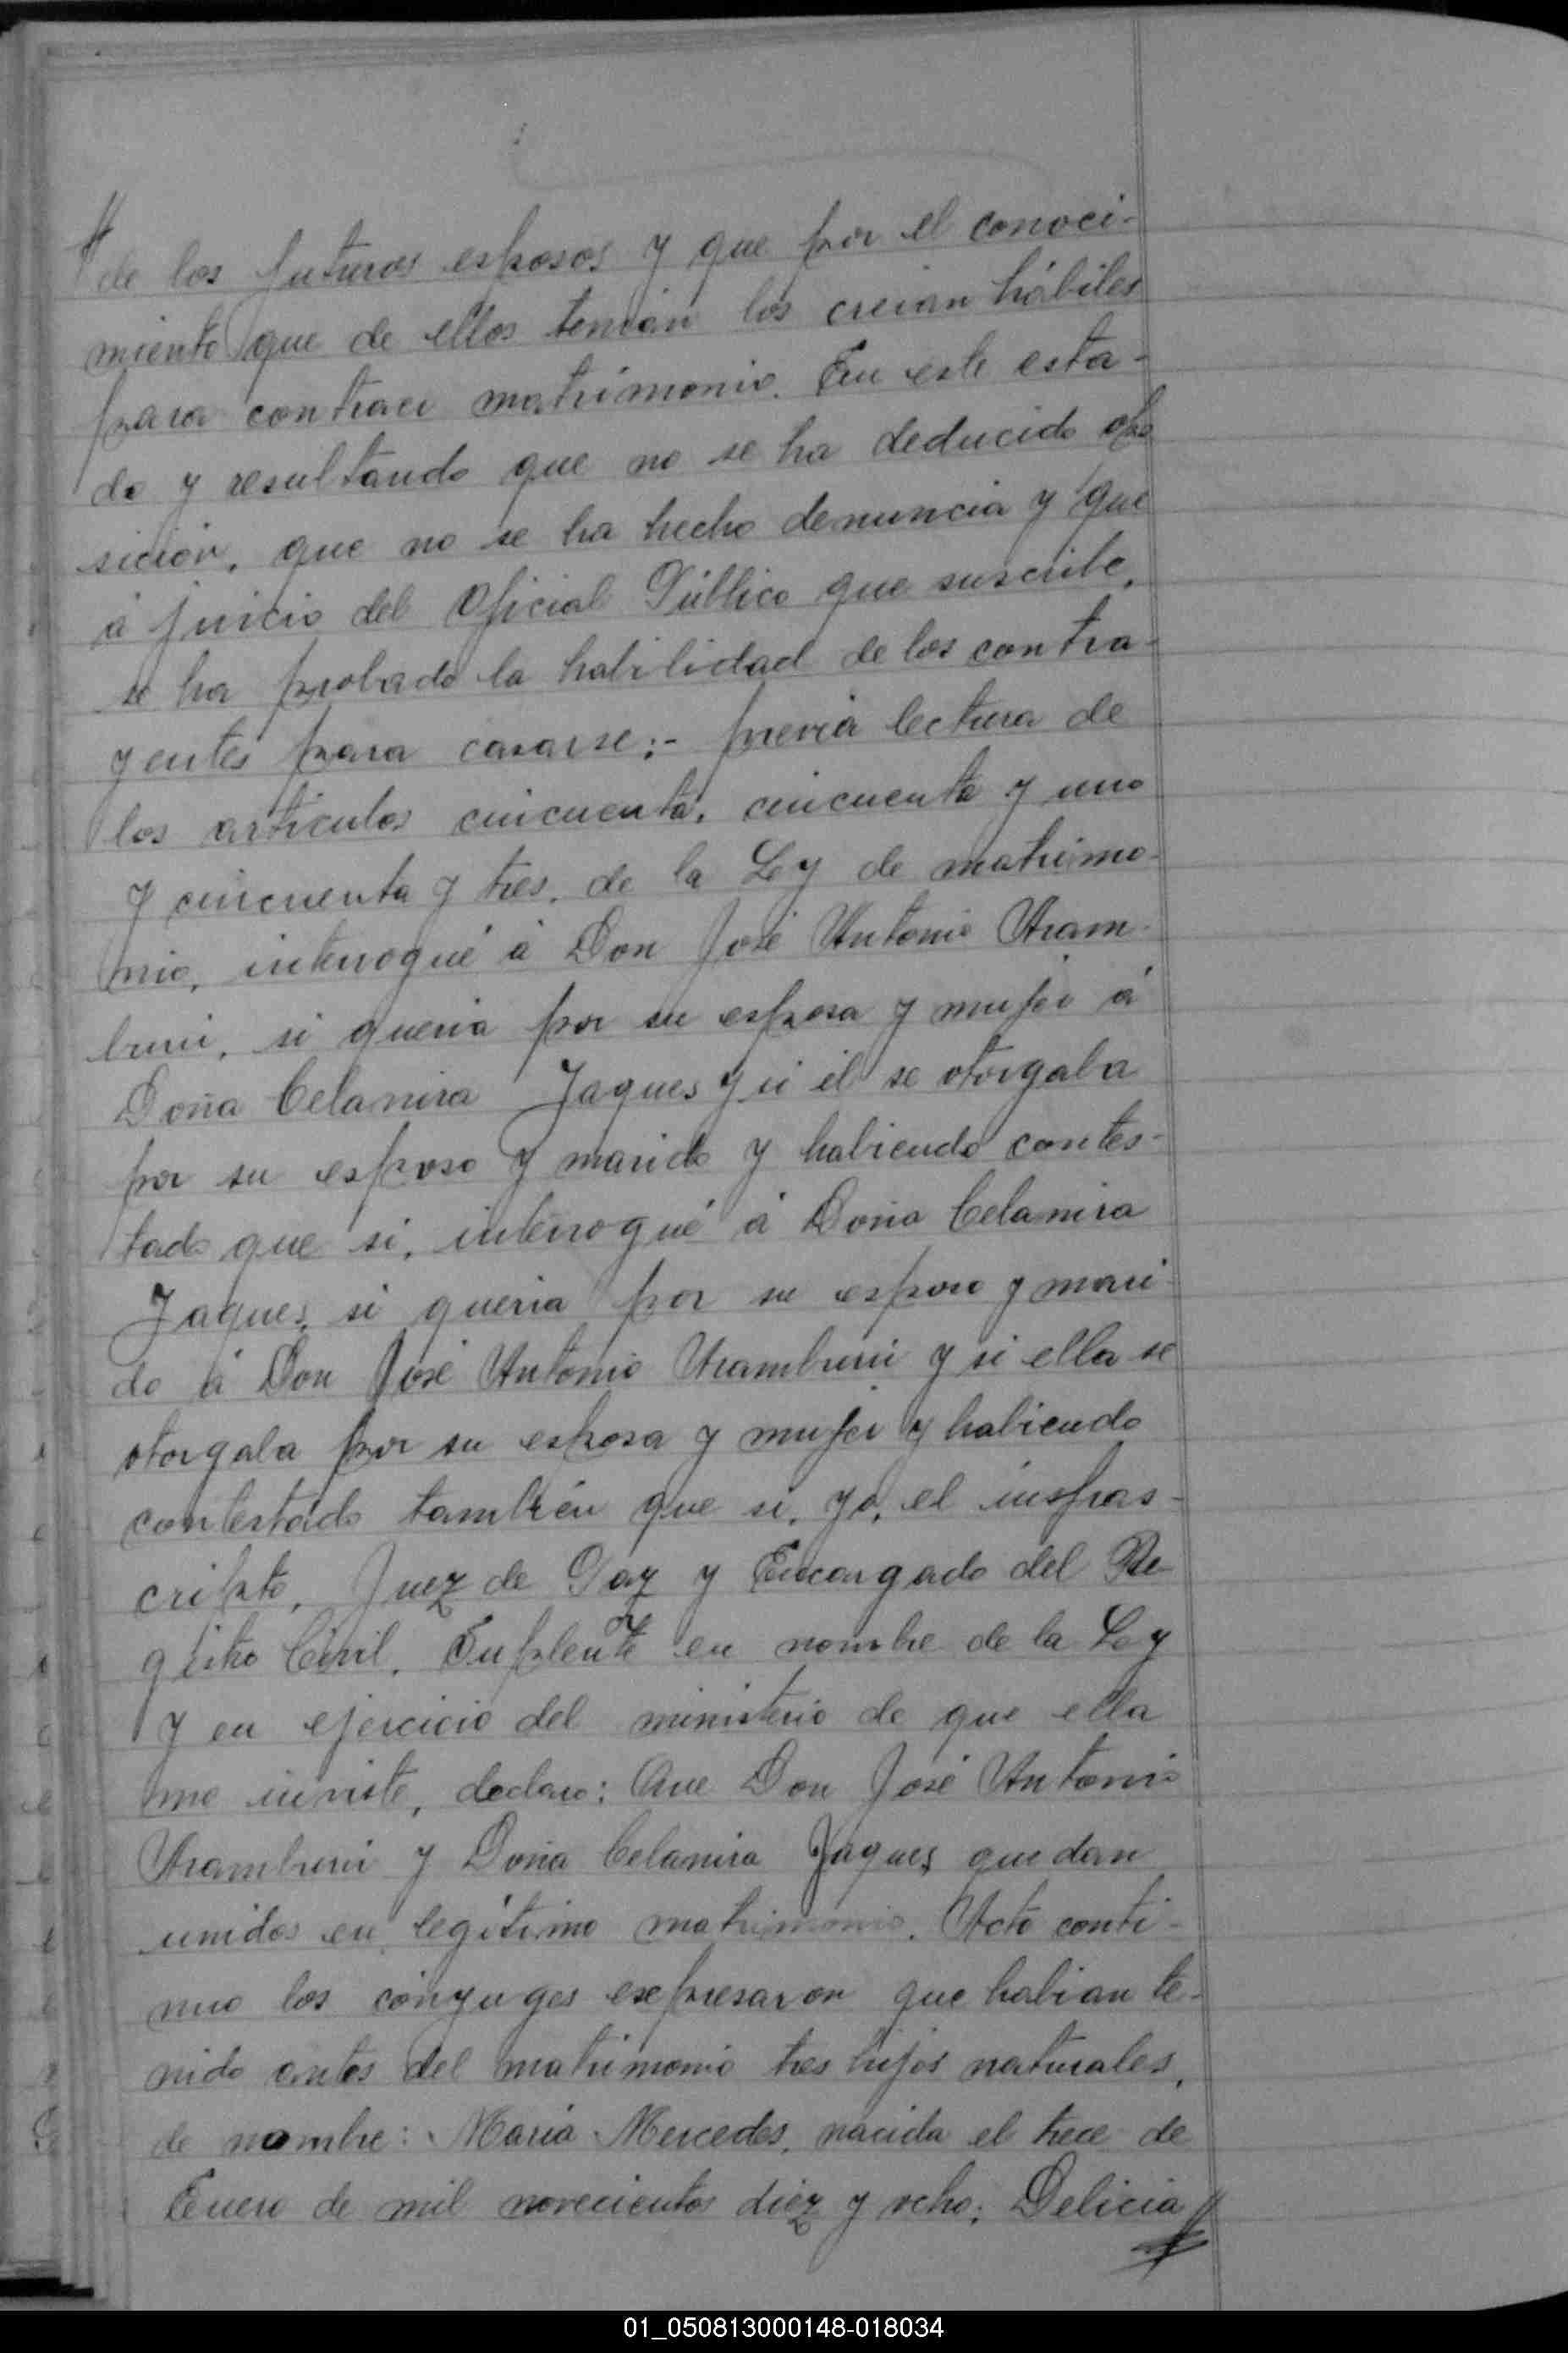 de los futuros esposos y que por el conoci-
miento que de ellos tenían los creian hábiles
para contraer matrimonio. En este esta-
do y resultando que no se ha deducido opo
sición, que no se ha hecho denuncia y que
á juicio del Oficial Público que suscribe,
se ha probado la habilidad de los contra-
yentes para casarse;- previa lectura de
los artículos cincuenta, cincuenta y uno
y cincuenta y tres, de la Ley de matrimo-
nio, interrogué á Don José Antonio Aram-
buru, si queria por su esposa y mujer á
Doña Celanira Jaques y si él se otorgaba
por su esposo y marido y habiendo contes-
tado que si, interrogué á Doña Celanira
Jaques, si queria por su esposo y mari-
do á Don José Antonio Aramburu y si ella se
otorgaba por su esposa y mujer y habiendo
contestado también que si, yo, el infras-
cripto, Juez de Paz y Encargado del Re-
gistro Civil, Suplente en nombre de la Ley
y en ejercicio del ministerio de que ella
me inviste, declaro: Que Don José Antonio
Aramburu y Doña Celanira Jaques quedan
unidos en legítimo matrimonio. Acto conti-
nuo los cónyuges expresaron que habian te-
nido antes del matrimonio tres hijos naturales,
de nombre: María Mercedes, nacida el trece de
Enero de mil novecientos diez y ocho; Delicia
01_050813000148-018034